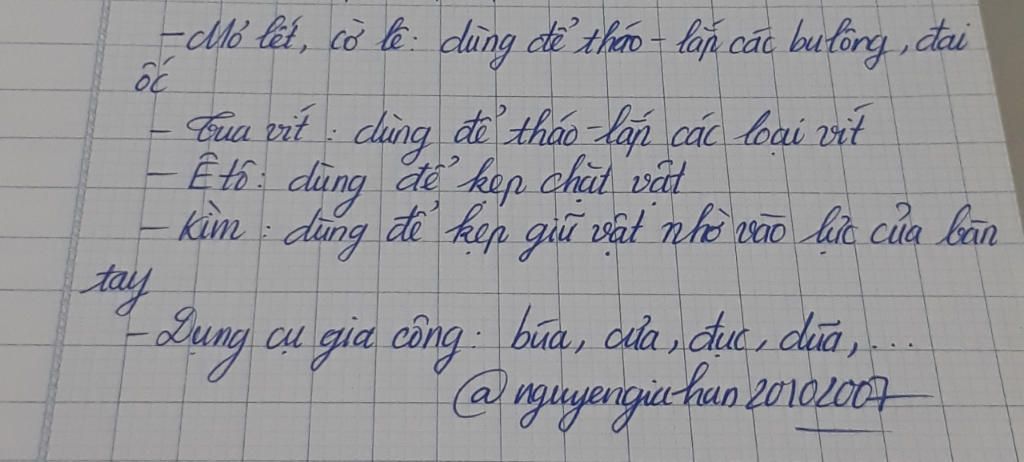 - Mỏ lết, cờ lê: dùng để tháo - lắp các bulông, đai
ốc
- Tua vít: dùng để tháo - lắp các loại vít
- Ê tô: dùng để kẹp chặt vật
- Kìm: dùng để kẹp giữ vật nhờ vào lực của bàn
tay
- Dụng cụ gia công: búa, cưa, đục, dũa,...
@nguyengiahan20102007